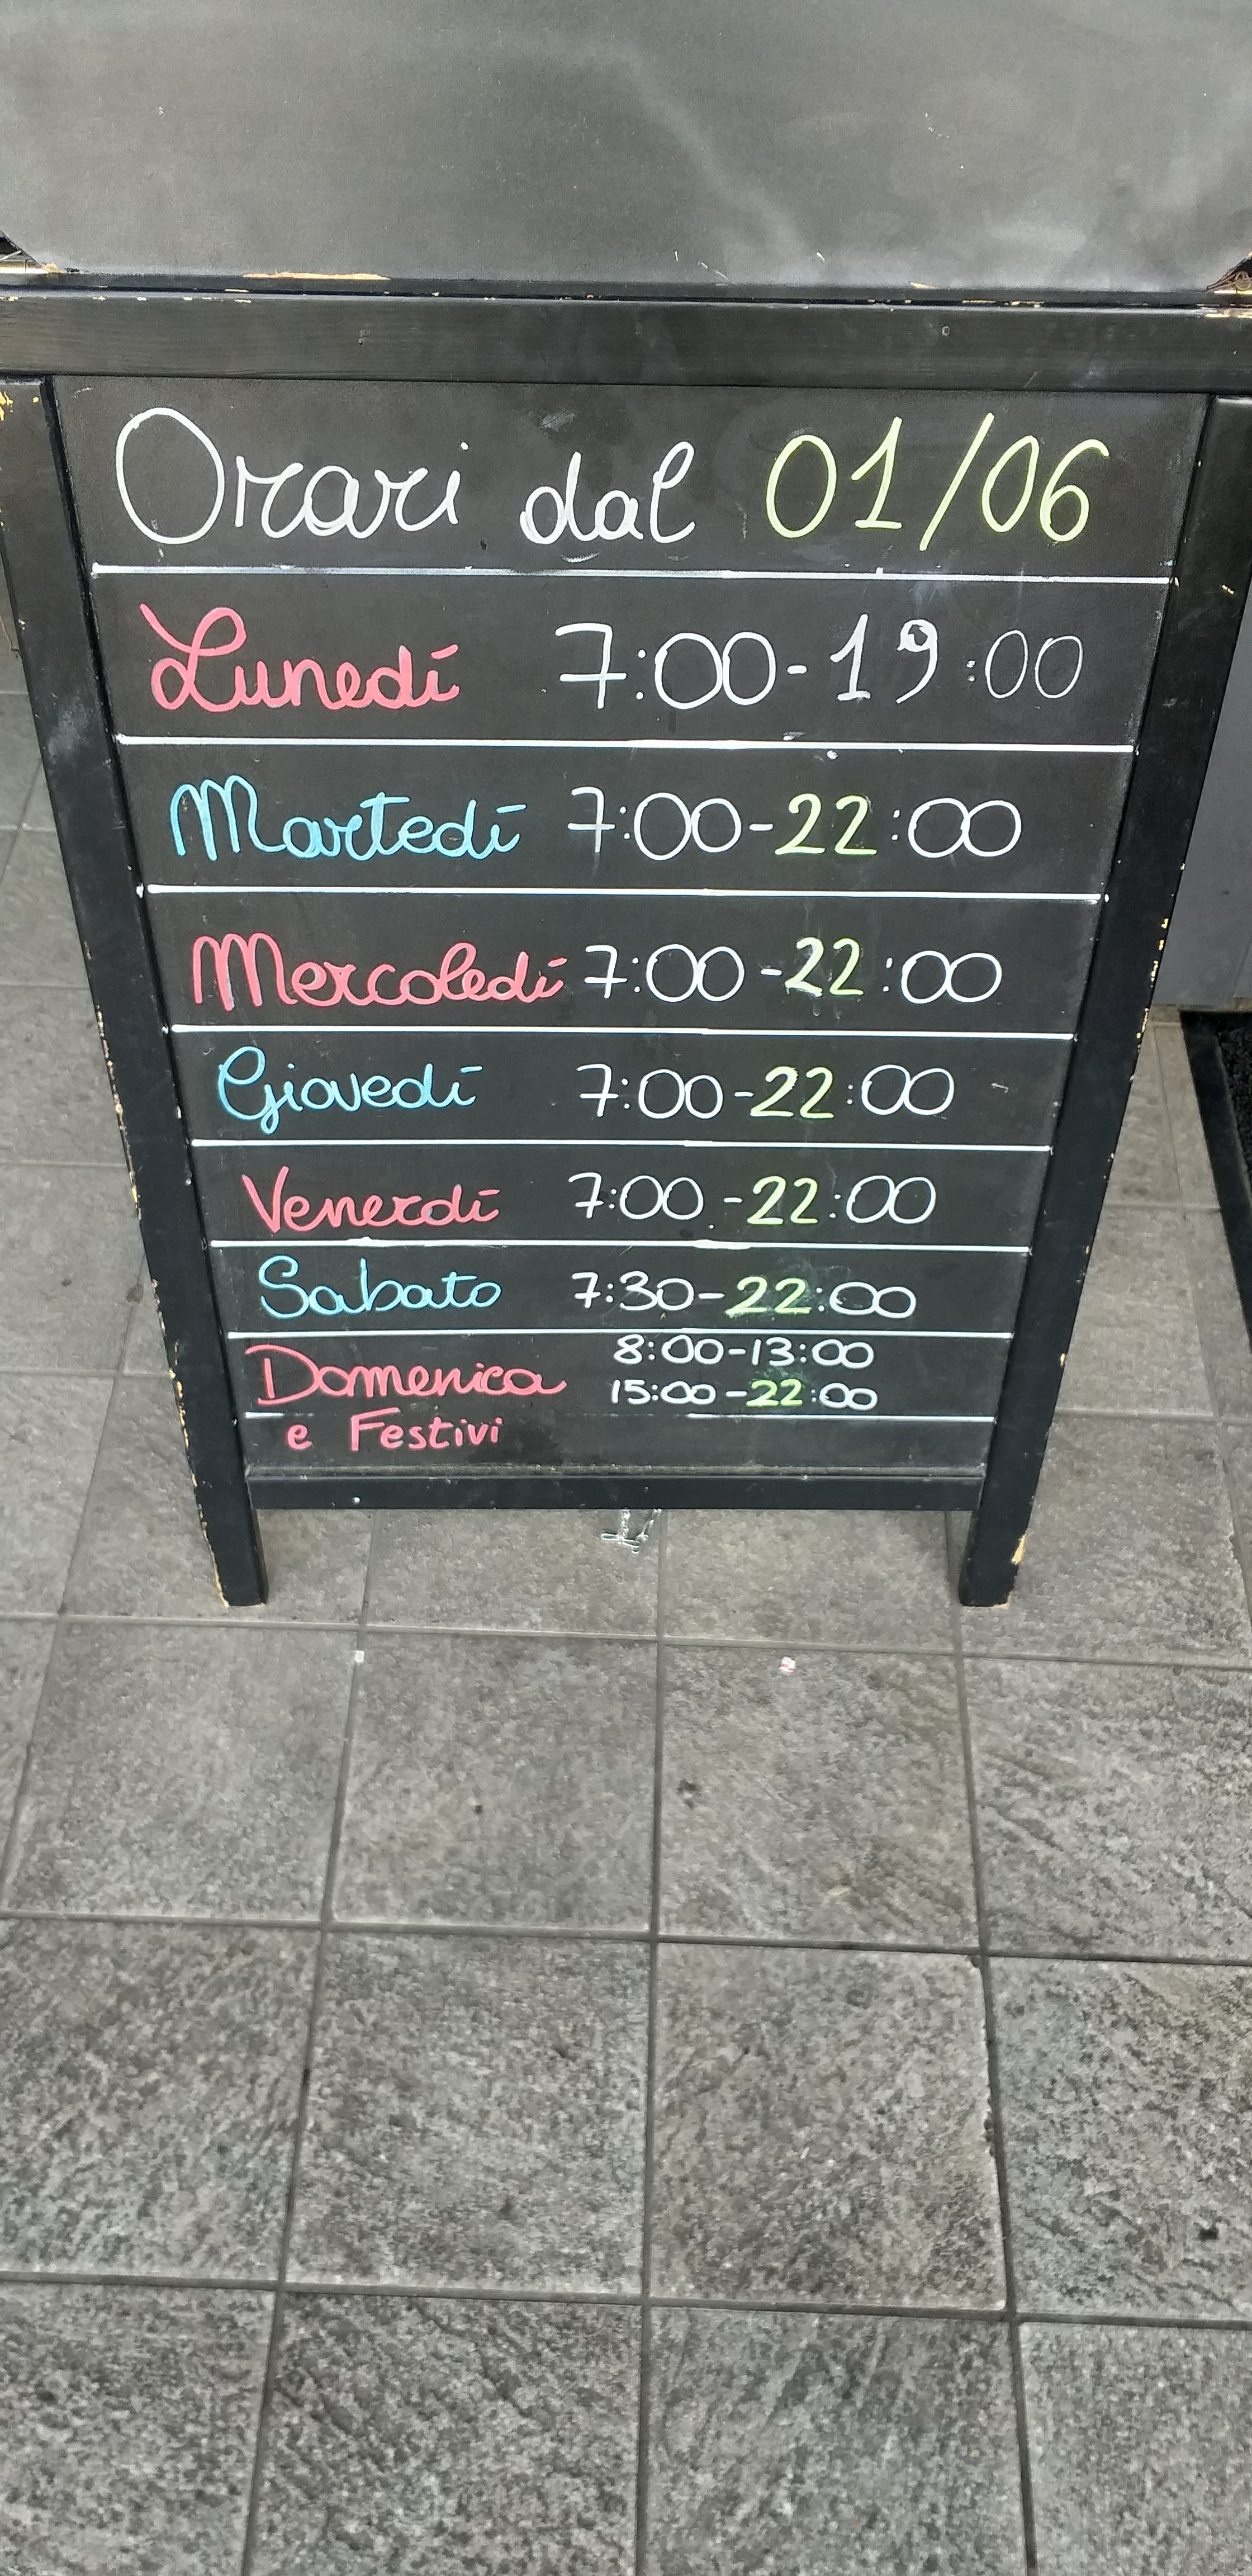 Orari dal 01/06
Lunedí 7:00-19:00
Martedí 7:00-22:00
Mercoledí 7:00-22:00
Giovedí 7:00-22:00
Venerdí 7:00-22:00
Sabato 7:30-22:00
Domenica 8:00-13:00
15:00-22:00
e Festivi